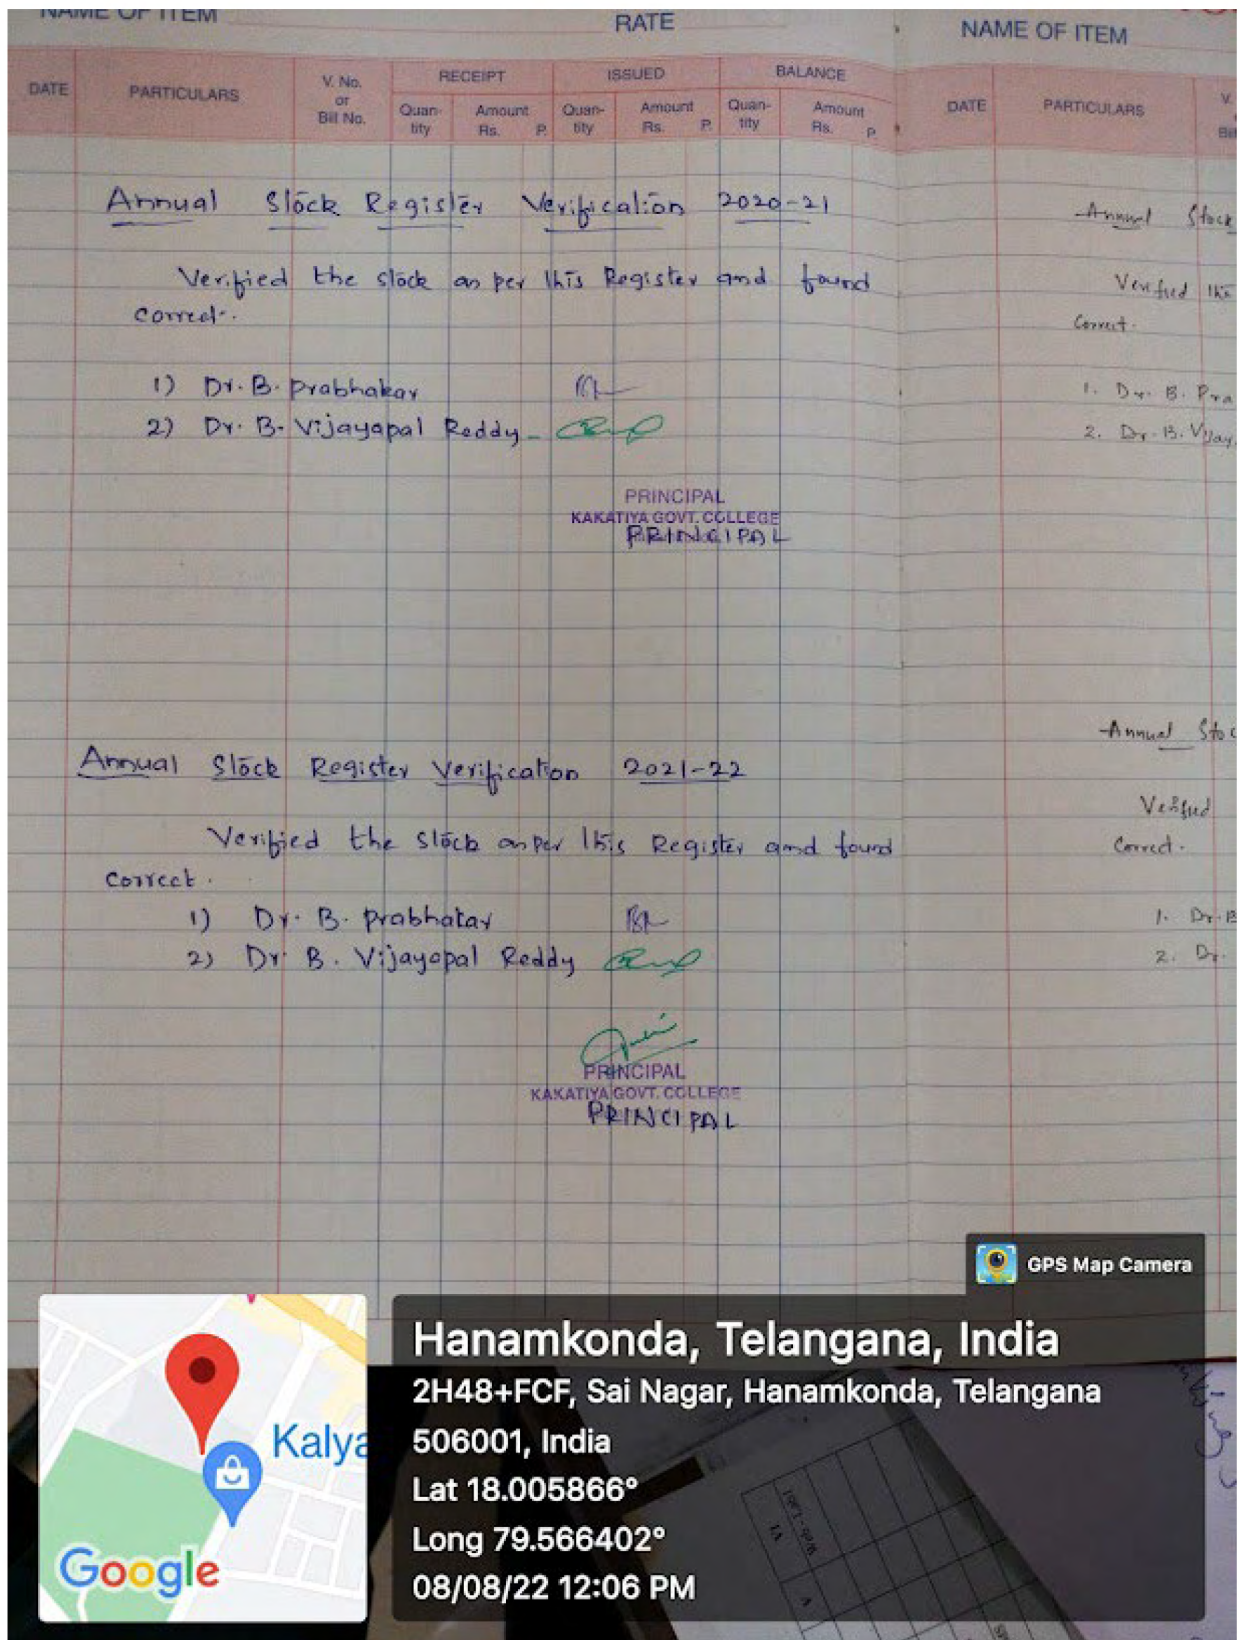 NAME OF ITEM
RATE
DATE PARTICULARS V. No. or Bill No. RECEIPT ISSUED BALANCE
Quantity Amount Rs. P. Quantity Amount Rs. P. Quantity Amount Rs. P.
Annual Stock Register Verification 2020-21
Verified the stock as per this Register and found
correct.
1) Dr. B. Prabhakar
2) Dr. B. Vijayapal Reddy -
PRINCIPAL
KAKATIYA GOVT. COLLEGE
PRINCIPAL
Annual Stock Register Verification 2021-22
Verified the stock as per this Register and found
correct.
1) Dr. B. Prabhakar
2) Dr. B. Vijayapal Reddy
PRINCIPAL
KAKATIYA GOVT. COLLEGE
PRINCIPAL
NAME OF ITEM
DATE PARTICULARS V.
Annual Stock
Verified this
Correct.
1. Dr. B. Pra
2. Dr. B. Vijay
Annual Stoc
Verified
Correct.
1. Dr. B
2. Dr.
GPS Map Camera
Kalya
Google
Hanamkonda, Telangana, India
2H48+FCF, Sai Nagar, Hanamkonda, Telangana
506001, India
Lat 18.005866°
Long 79.566402°
08/08/22 12:06 PM